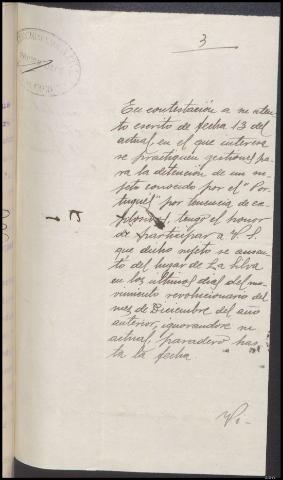 3
En contestación a su aten-
to escrito de fecha 13 del
actual, en el que interesa
se practiquen gestiones pa-
ra la detención de un su-
jeto conocido por el "Por-
tugués" por tenencia de ex-
plosivos, tengo el honor
de participar a V. S.
que dicho sujeto se ausen-
tó del lugar de La Silva
en los últimos días del mo-
vimiento revolucionario del
mes de Diciembre del año
anterior, ignorandose su
actual paradero has-
ta la fecha